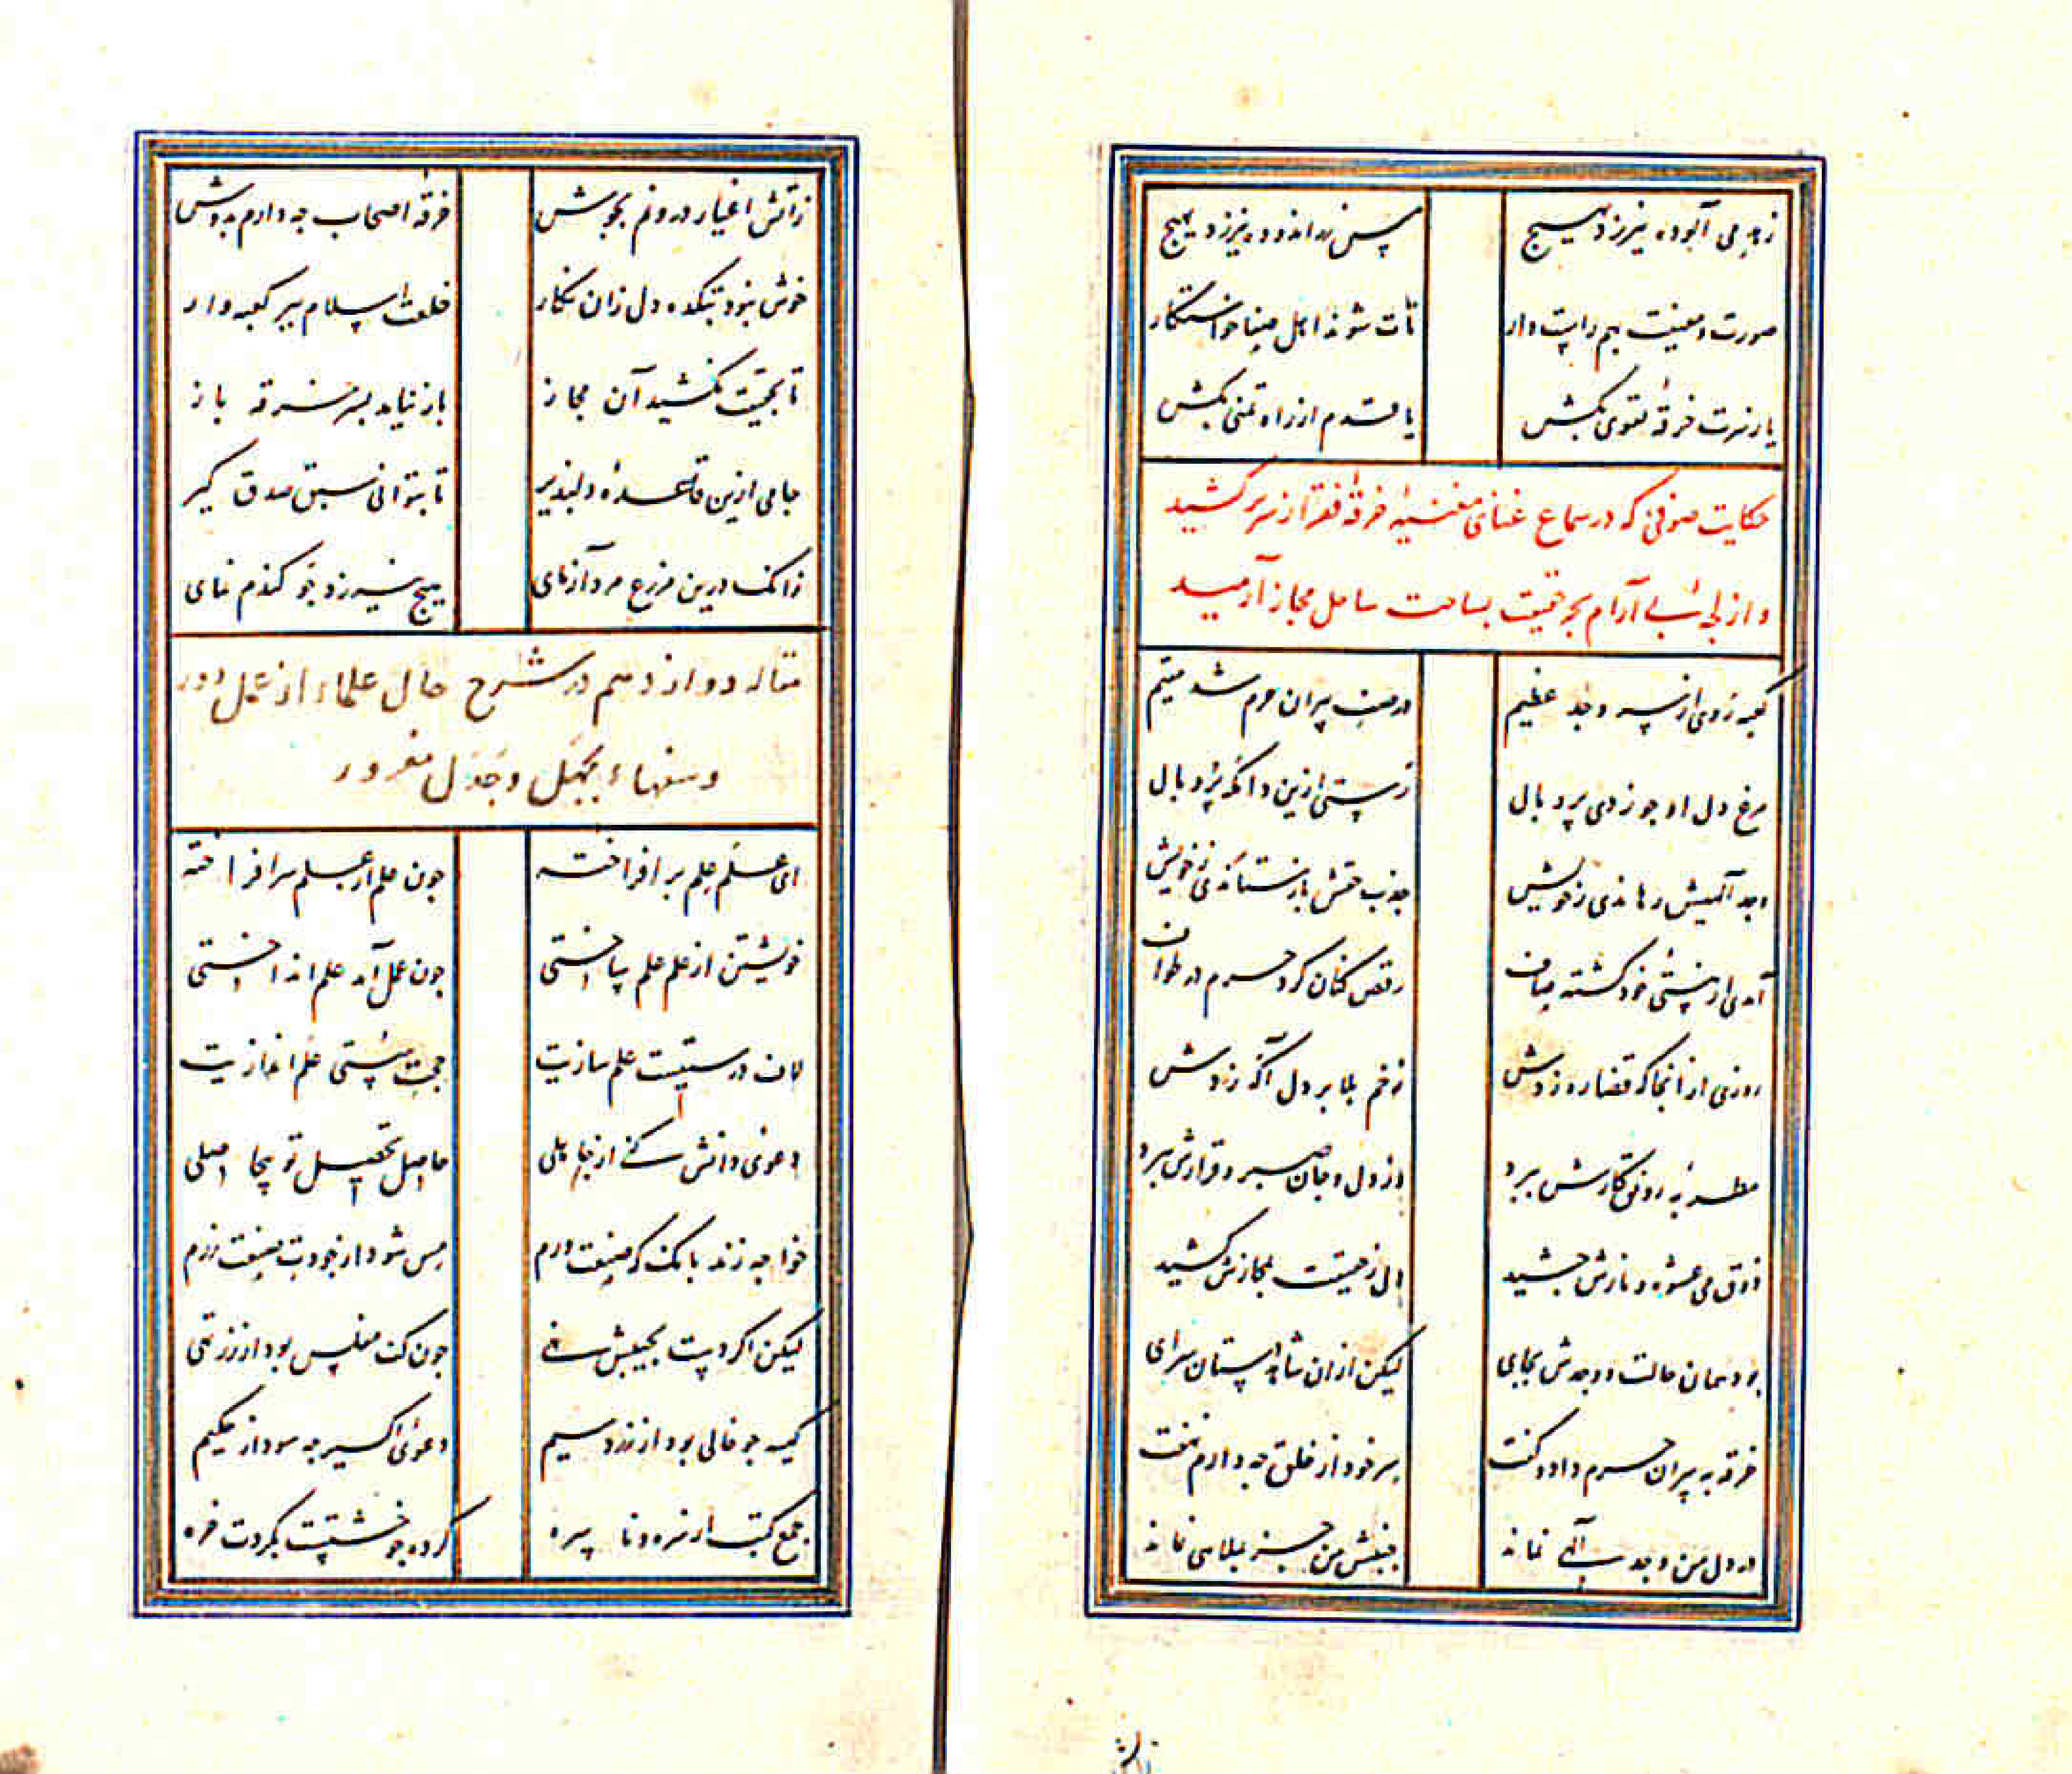 زهد می آلوده نیرزد بهیچ پس زراندوده نیرزد بهیچ
صورت و معنیت بهم راست دار تات شوند اهل صفا خواستگار
یا ز سرت خرقه تقوی بکش یا قدم از راه تمنی بکش
حکایت صوفی که در سماع غنای مغنیه خرقه فقر از سر برکشید
و از لجه بی آرام بحر حقیقت بساحت ساحل مجاز آرمید
کعبه روی از سر وجد عظیم در صف پیران حرم شد مقیم
مرغ دل او چو زدی پر و بال رستی ازین دامگه پر و بال
وجد آلهیش رهاندی ز خویش جذب حقش بازستاندی ز خویش
آمدی از هستی خود گشته صاف رقص کنان گرد حرم در طواف
روزی از آنجا که قضا ره زدش زخم بلا بر دل آگه زدش
مطربه رونق کارش ببرد وز دل و جان صبر و قرارش ببرد
ذوق می عشوه و نازش چشید دل ز حقیقت بمجازش کشید
بود همان حالت و وجدش بجای لیکن ازان شاهد دستان سرای
خرقه به پیران حرم داد و گفت سر خود از خلق چه دارم نهفت
در دل من وجد آلهی نماند جنبش من جز بملاهی نماند
زاتش
زاتش اغیار درونم بجوش خرقه اصحاب چه دارم بدوش
خوش نبود بتکده دل زان نگار خلعت اسلام ببر کعبه وار
تا بحقیقت نکشید آن مجاز باز نیامد بسر خرقه باز
جامی ازین قاعده دلپذیر تا بتوانی سبق صدق گیر
زانک درین مزرع مرد آزمای هیچ نیرزد جو گندم نمای
مقاله دوازدهم در شرح حال علماء از عمل دور
و سفهاء بجهل و جدل مغرور
ای علم علم بر افراخته چون علم از علم سر افراخته
خویشتن از علم علم ساختی چون عمل آمد علم انداختی
لاف درستیست علم سازیت حجت سستی علم اندازیت
دعوی دانش کنی از جاهلی حاصل تحصیل تو بیحاصلی
خواجه زند بانک که صنعت ورم مس شود از جودت صنعت زرم
لیکن اگر دست بجیبش نهی چون کف مفلس بود از زر تهی
کیسه چو خالی بود از زر و سیم دعوی اکسیر چه سود از حکیم
جمع کتب از سره و ناسره کرده چو خشتست بگردت خره